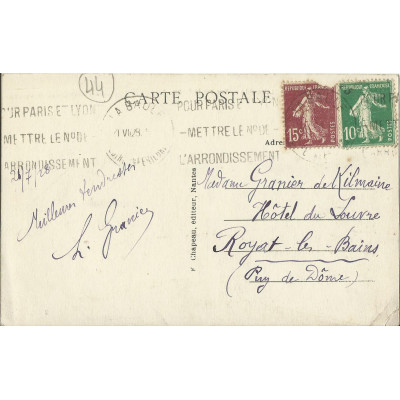 44
CARTE POSTALE
POUR PARIS ET LYON
METTRE LE N° DE
L'ARRONDISSEMENT
POUR PARIS E
—METTRE LE N° DE
L'ARRONDISSEMENT
REPUBLIQUE FRANÇAISE
15c
POSTES
REPUBLIQUE FRANÇAISE
10c
POSTES
Adres
Meilleures tendresses
Granier
F Chapeau, éditeur, Nantes
Madame Granier de Kilmaine
Hôtel du Louvre
Royat-les-Bains
(Puy de Dôme)